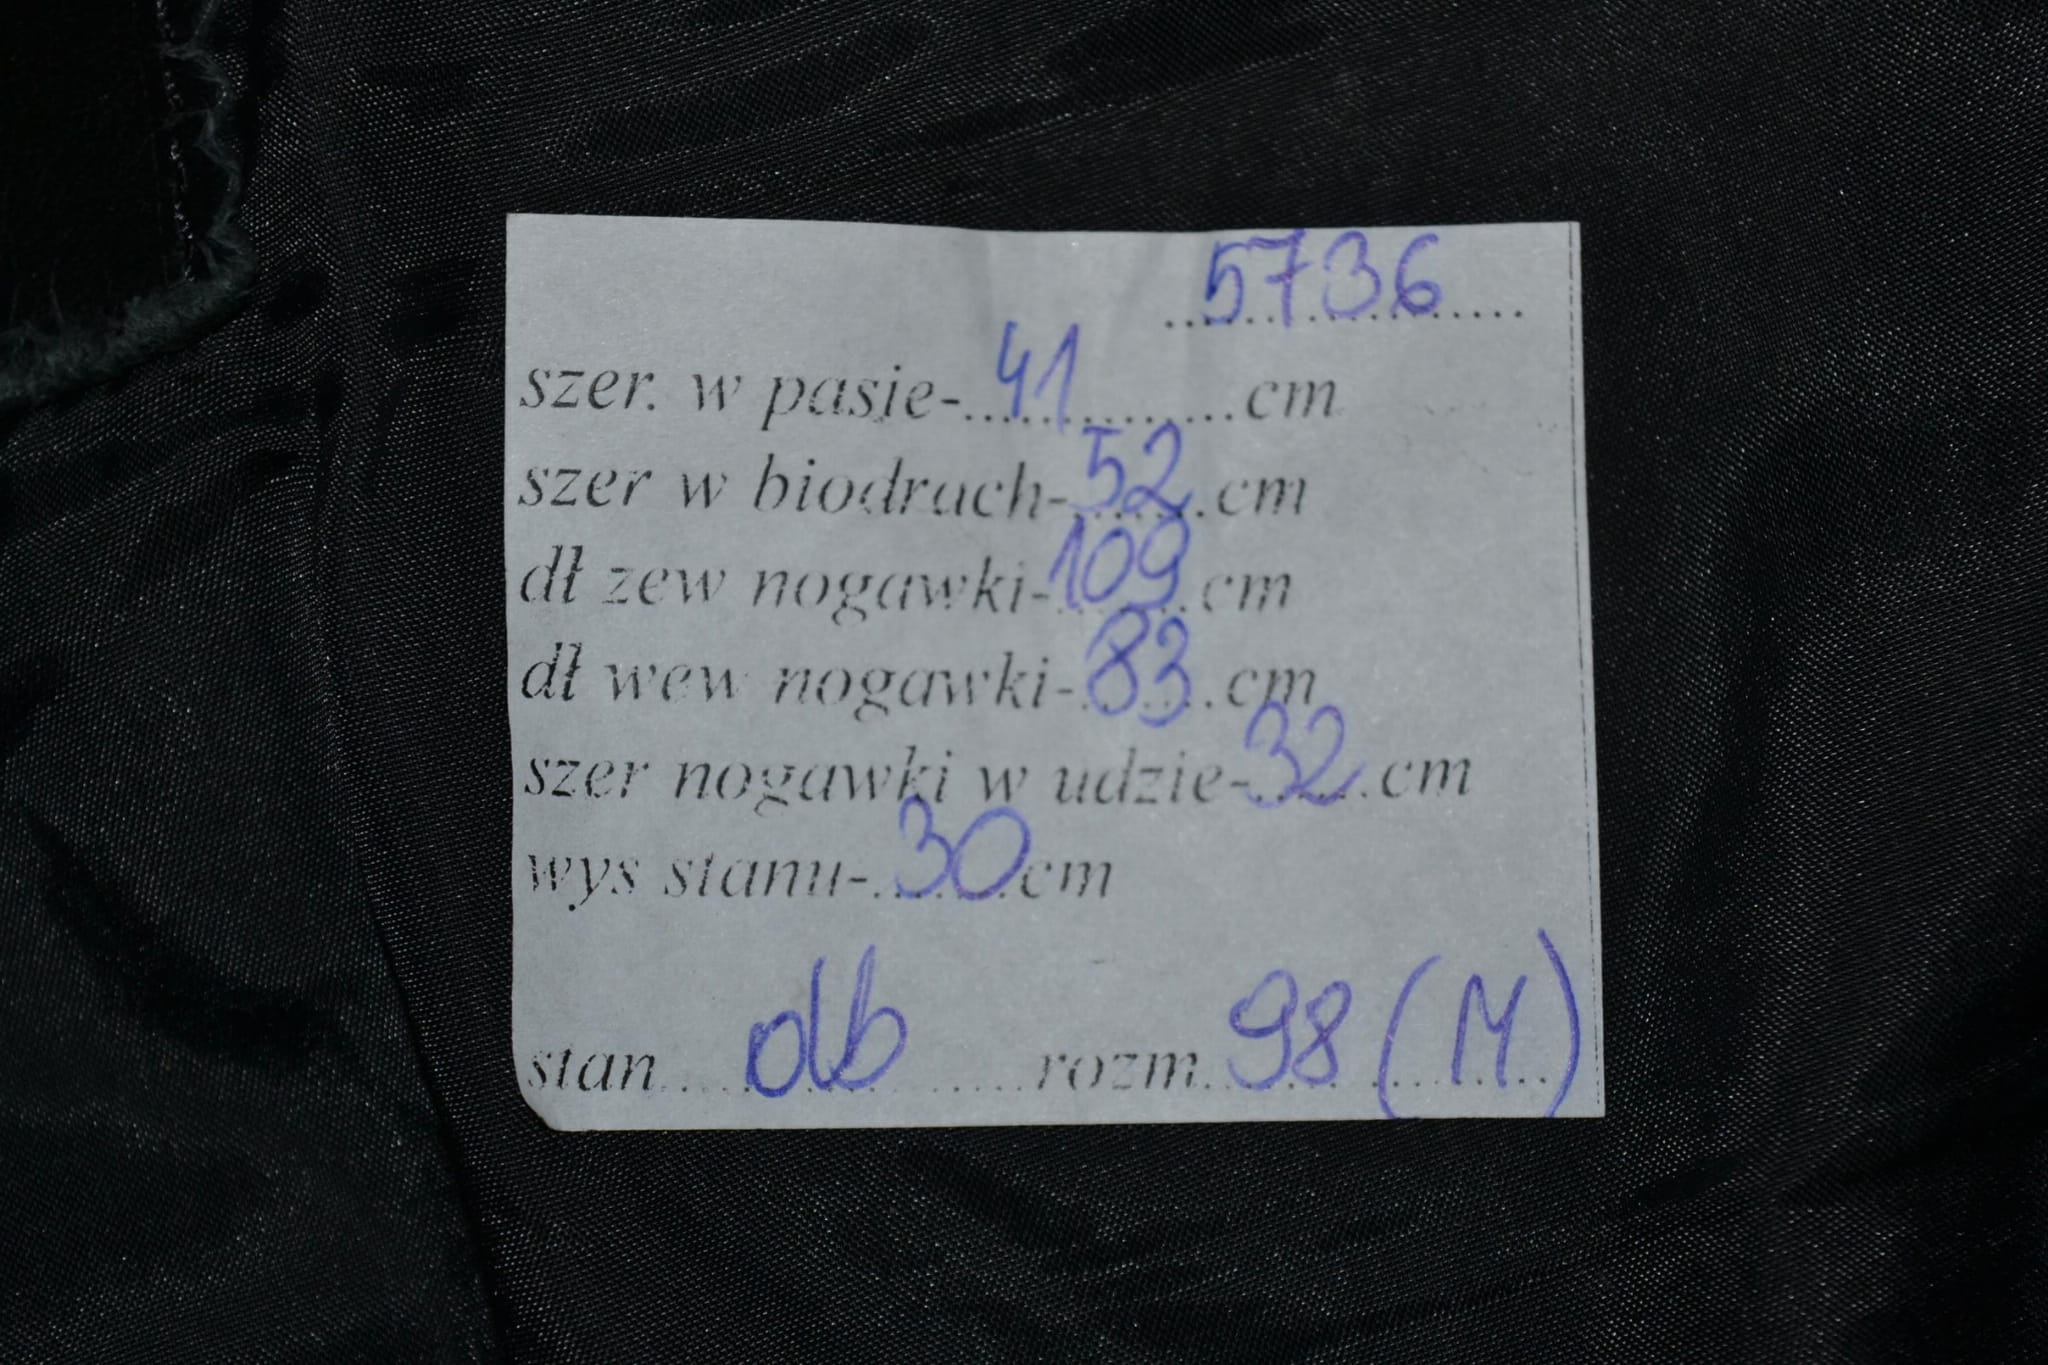 5736
szer. w pasie-41 cm
szer w biodrach-52 cm
dł zew nogawki-109 cm
dł wew nogawki-83 cm
szer nogawki w udzie-32 cm
wys stanu-30 cm
stan db rozm 98 (M)